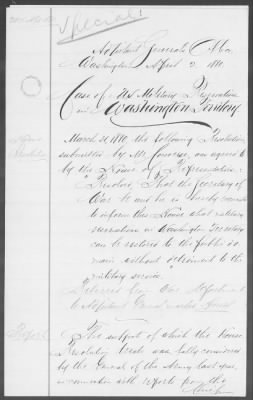 Special
Adjutant General's Office
Washington April 2, 1880.
Case of US Military Reservations
in Washington Territory
House
Resolution
March 31, 1880, the following Resolution
submitted by Mr. Converse, was agreed to
by the House of Representatives
"Resolved, That the Secretary of
War be and he is hereby requested
to inform this House what military
reservations in Washington Territory
can be restored to the public do-
main without detriment to the
military service."
Referred from War Department
to Adjutant General
Report
The subject of which the House
Resolution treats was fully considered
by the General of the Army last year,
in connection with reports from the